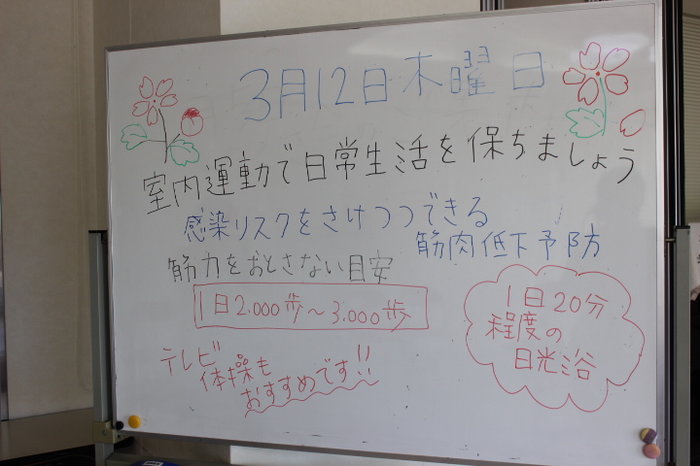 3月12日木曜日
室内運動で日常生活を保ちましょう
感染リスクをさけつつできる
筋肉低下予防
筋力をおとさない目安
1日2.000歩～3.000歩
1日20分
程度の
日光浴
テレビ
体操も
おすすめです!!